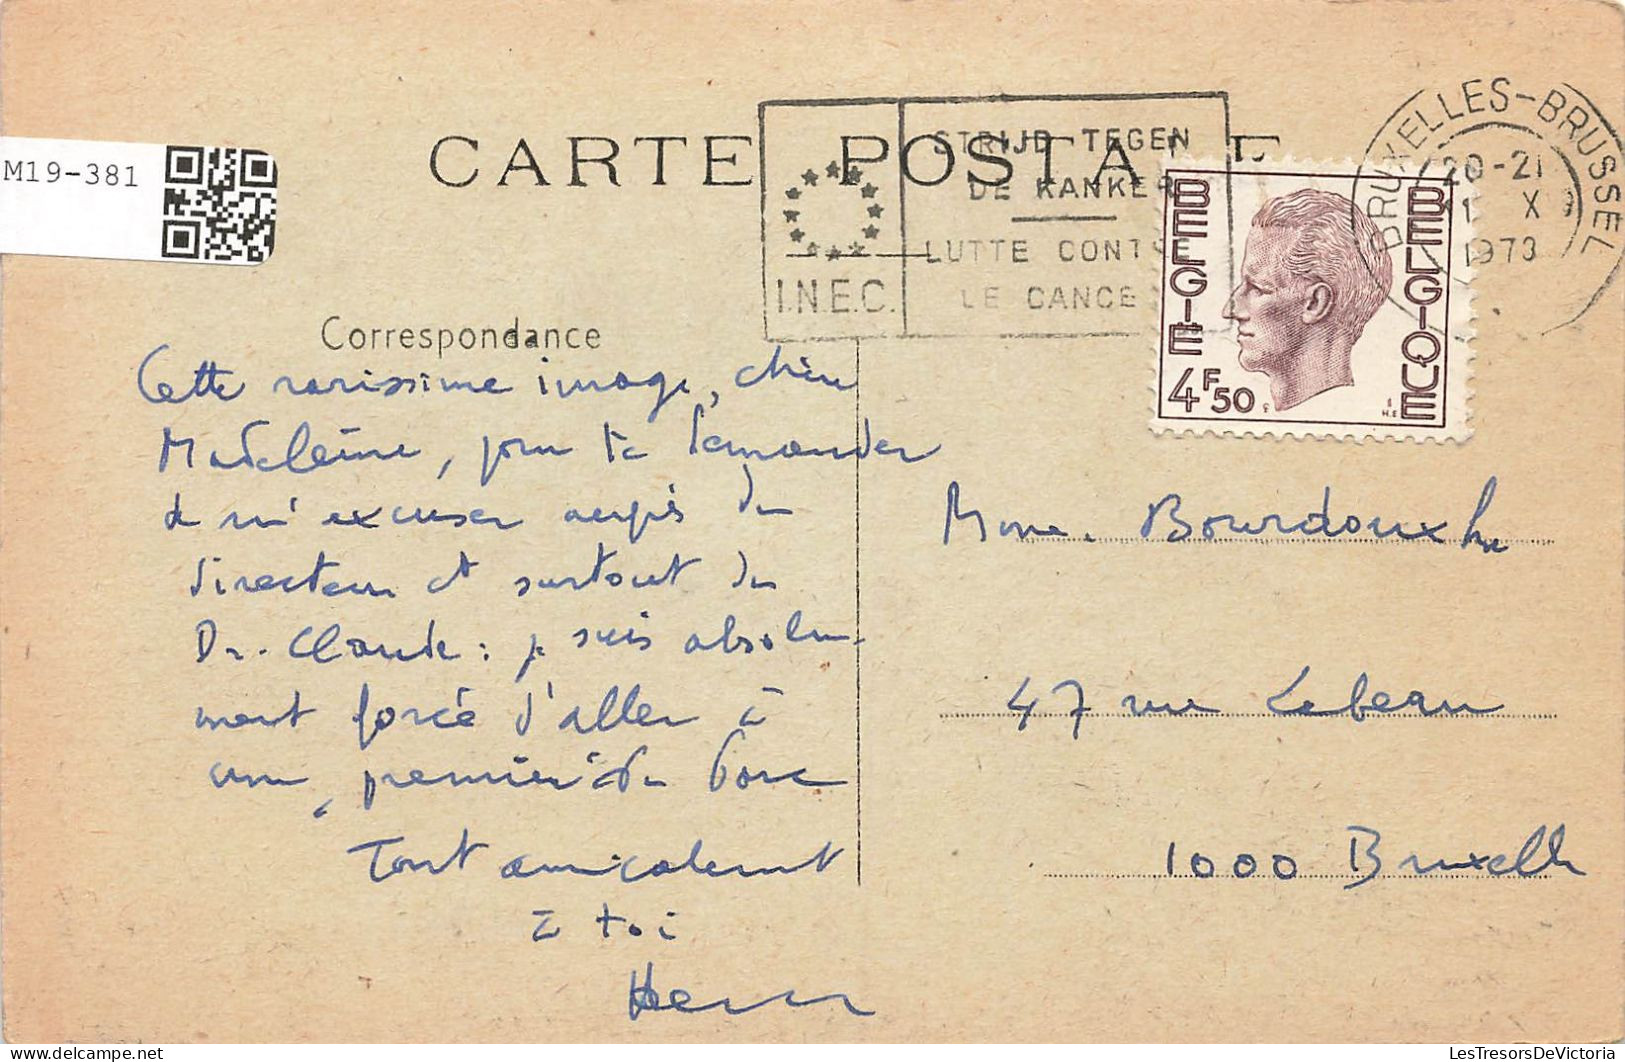 M19-381
CARTE POSTALE
STRIJD TEGEN
DE KANKER
LUTTE CONTRE
LE CANCE
I.N.E.C.
BRUXELLES-BRUSSEL
20-21
1 X
1973
BELGIE
BELGIQUE
4F50
Correspondance
Cette rarissime image, chère
Madeleine, pour te demander
de m'excuser auprès du
directeur et surtout du
Dr. Claude : je suis absolu-
ment forcé d'aller à
une première du Parc
Tout amicalement
à toi
Mme. Bourdouxhe
47 rue Lebeau
1000 Bruxelles
LesTresorsDeVictoria